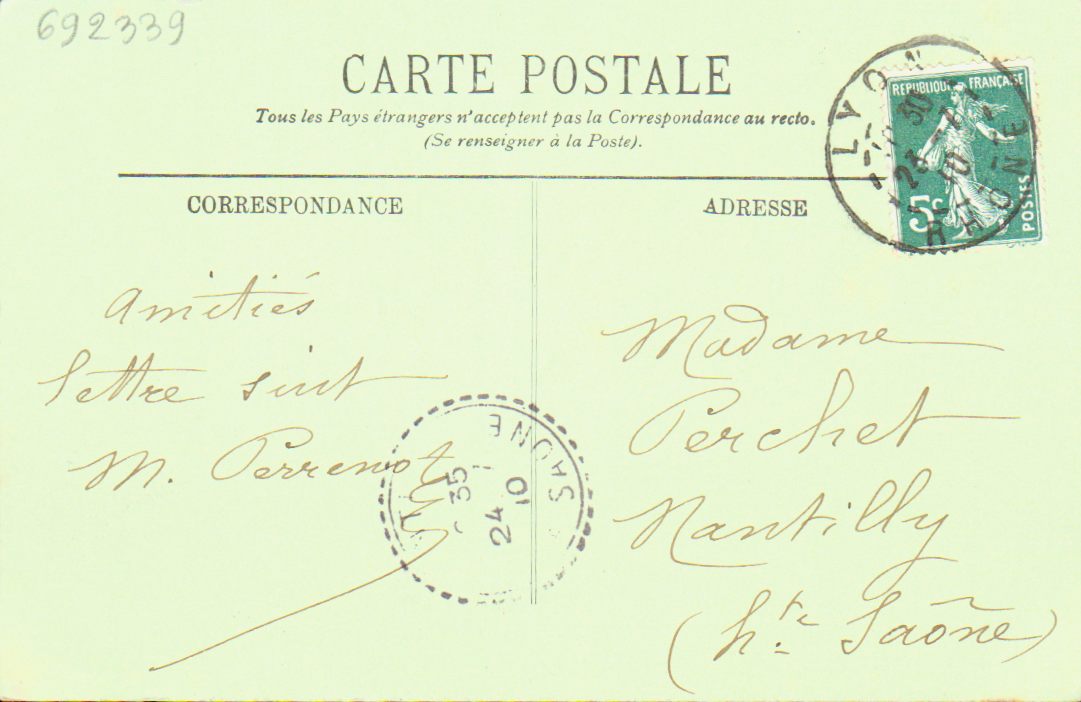 692339
CARTE POSTALE
Tous les Pays étrangers n'acceptent pas la Correspondance au recto.
(Se renseigner à la Poste).
LYON
RHONE
30
23
10
REPUBLIQUE FRANÇAISE
5c
POSTES
CORRESPONDANCE
ADRESSE
Amitiés
lettre suit
M. Perrenot
Madame
Perchet
Mantilly
(Hte Saône)
SAONE
35
24
10